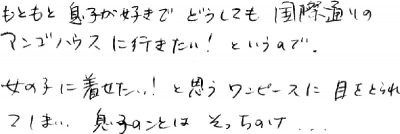 もともと息子が好きでどうしても国際通りの
マンゴハウスに行きたい！というので。
女の子に着せたい！と思うワンピースに目をとられ
てしまい息子のことはそっちのけ...